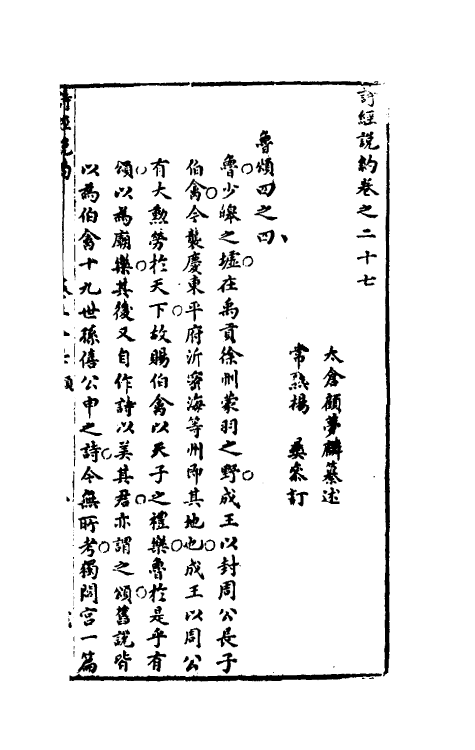 詩經說約卷之二十七
太倉顧夢麟纂述
常熟楊彝參訂
魯頌四之四
魯少皞之墟在禹貢徐州蒙羽之野成王以封周公長子
伯禽今襲慶東平府沂密海等州即其地也成王以周公
有大勲勞於天下故賜伯禽以天子之禮樂魯於是乎有
頌以為廟樂其後又自作詩以美其君亦謂之頌舊說皆
以為伯禽十九世孫僖公申之詩今無所考獨閟宮一篇
詩經說約